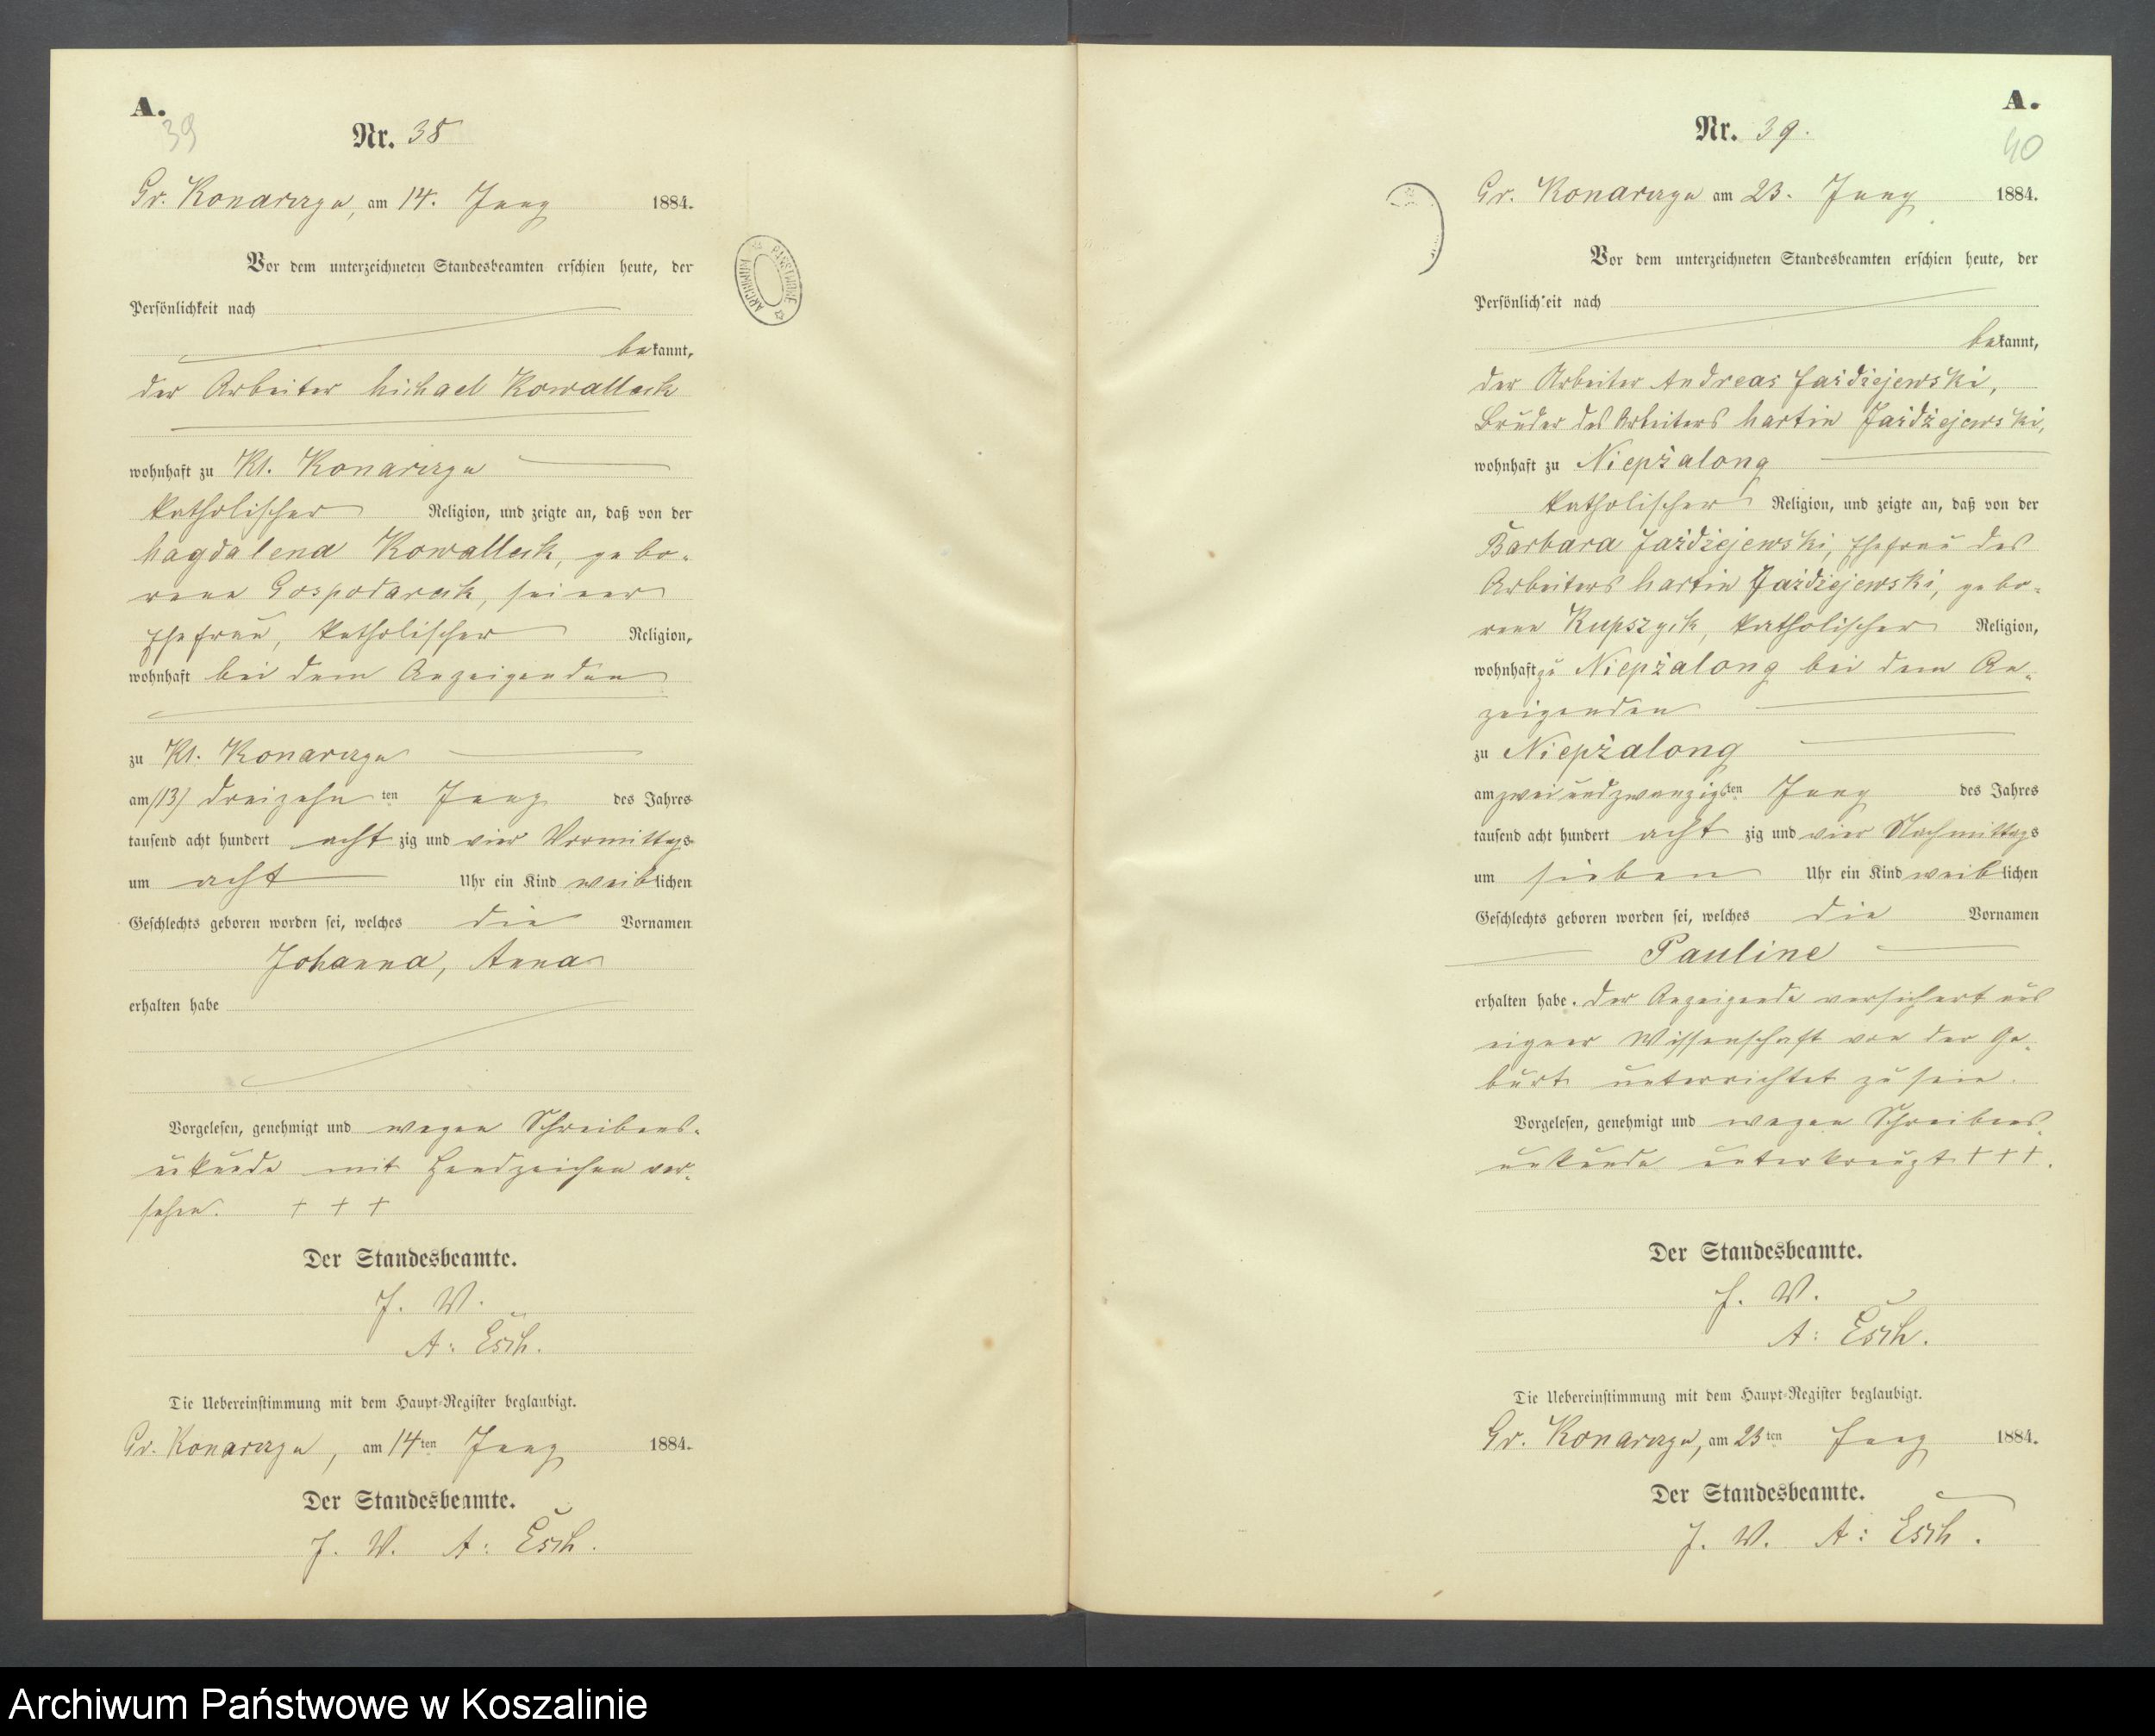 A.
39
Nr. 38
Gr. Konarczyn, am 14. Juny 1884.
Vor dem unterzeichneten Standesbeamten erschien heute, der
Persönlichkeit nach
bekannt,
der Arbeiter Michael Kowalleck
wohnhaft zu Kl. Konarczyn
katholischer Religion, und zeigte an, daß von der
Magdalena Kowalleck, gebo-
rene Gospodareck, seiner
Ehefrau, katholischer Religion,
wohnhaft bei dem Anzeigenden
zu Kl. Konarczyn
am (13) dreizehn ten Juny des Jahres
tausend acht hundert acht zig und vier Vormittags
um acht Uhr ein Kind weiblichen
Geschlechts geboren worden sei, welches die Vornamen
Johanna, Anna
erhalten habe
Vorgelesen, genehmigt und wegen Schreibens-
unkunde mit Handzeichen ver-
sehen. + + +
Der Standesbeamte.
J. V.
A: Esch.
Die Uebereinstimmung mit dem Haupt-Register beglaubigt.
Gr. Konarczyn, am 14ten Juny 1884.
Der Standesbeamte.
J. V. A: Esch.
ARCHIWUM PAŃSTWOWE
A.
40
Nr. 39.
Gr. Konarczyn am 23. Juny 1884.
Vor dem unterzeichneten Standesbeamten erschien heute, der
Persönlichkeit nach
bekannt,
der Arbeiter Andreas Jażdżejewski,
Bruder des Arbeiters Martin Jażdżejewski,
wohnhaft zu Niepżalong
katholischer Religion, und zeigte an, daß von der
Barbara Jażdżejewski, Ehefrau des
Arbeiters Martin Jażdżejewski, gebo-
rene Kupszyk, katholischer Religion,
wohnhaft zu Niepżalong bei dem An-
zeigenden
zu Niepżalong
am zwei und zwanzigsten Juny des Jahres
tausend acht hundert acht zig und vier Nachmittags
um sieben Uhr ein Kind weiblichen
Geschlechts geboren worden sei, welches die Vornamen
Pauline
erhalten habe. Der Anzeigende versichert aus
eigner Wissenschaft von der Ge-
burt unterrichtet zu sein.
Vorgelesen, genehmigt und wegen Schreibens-
unkunde unterkreuzt + + +.
Der Standesbeamte.
J. V.
A: Esch.
Die Uebereinstimmung mit dem Haupt-Register beglaubigt.
Gr. Konarczyn, am 23ten Juny 1884.
Der Standesbeamte.
J. V. A: Esch.
Archiwum Państwowe w Koszalinie